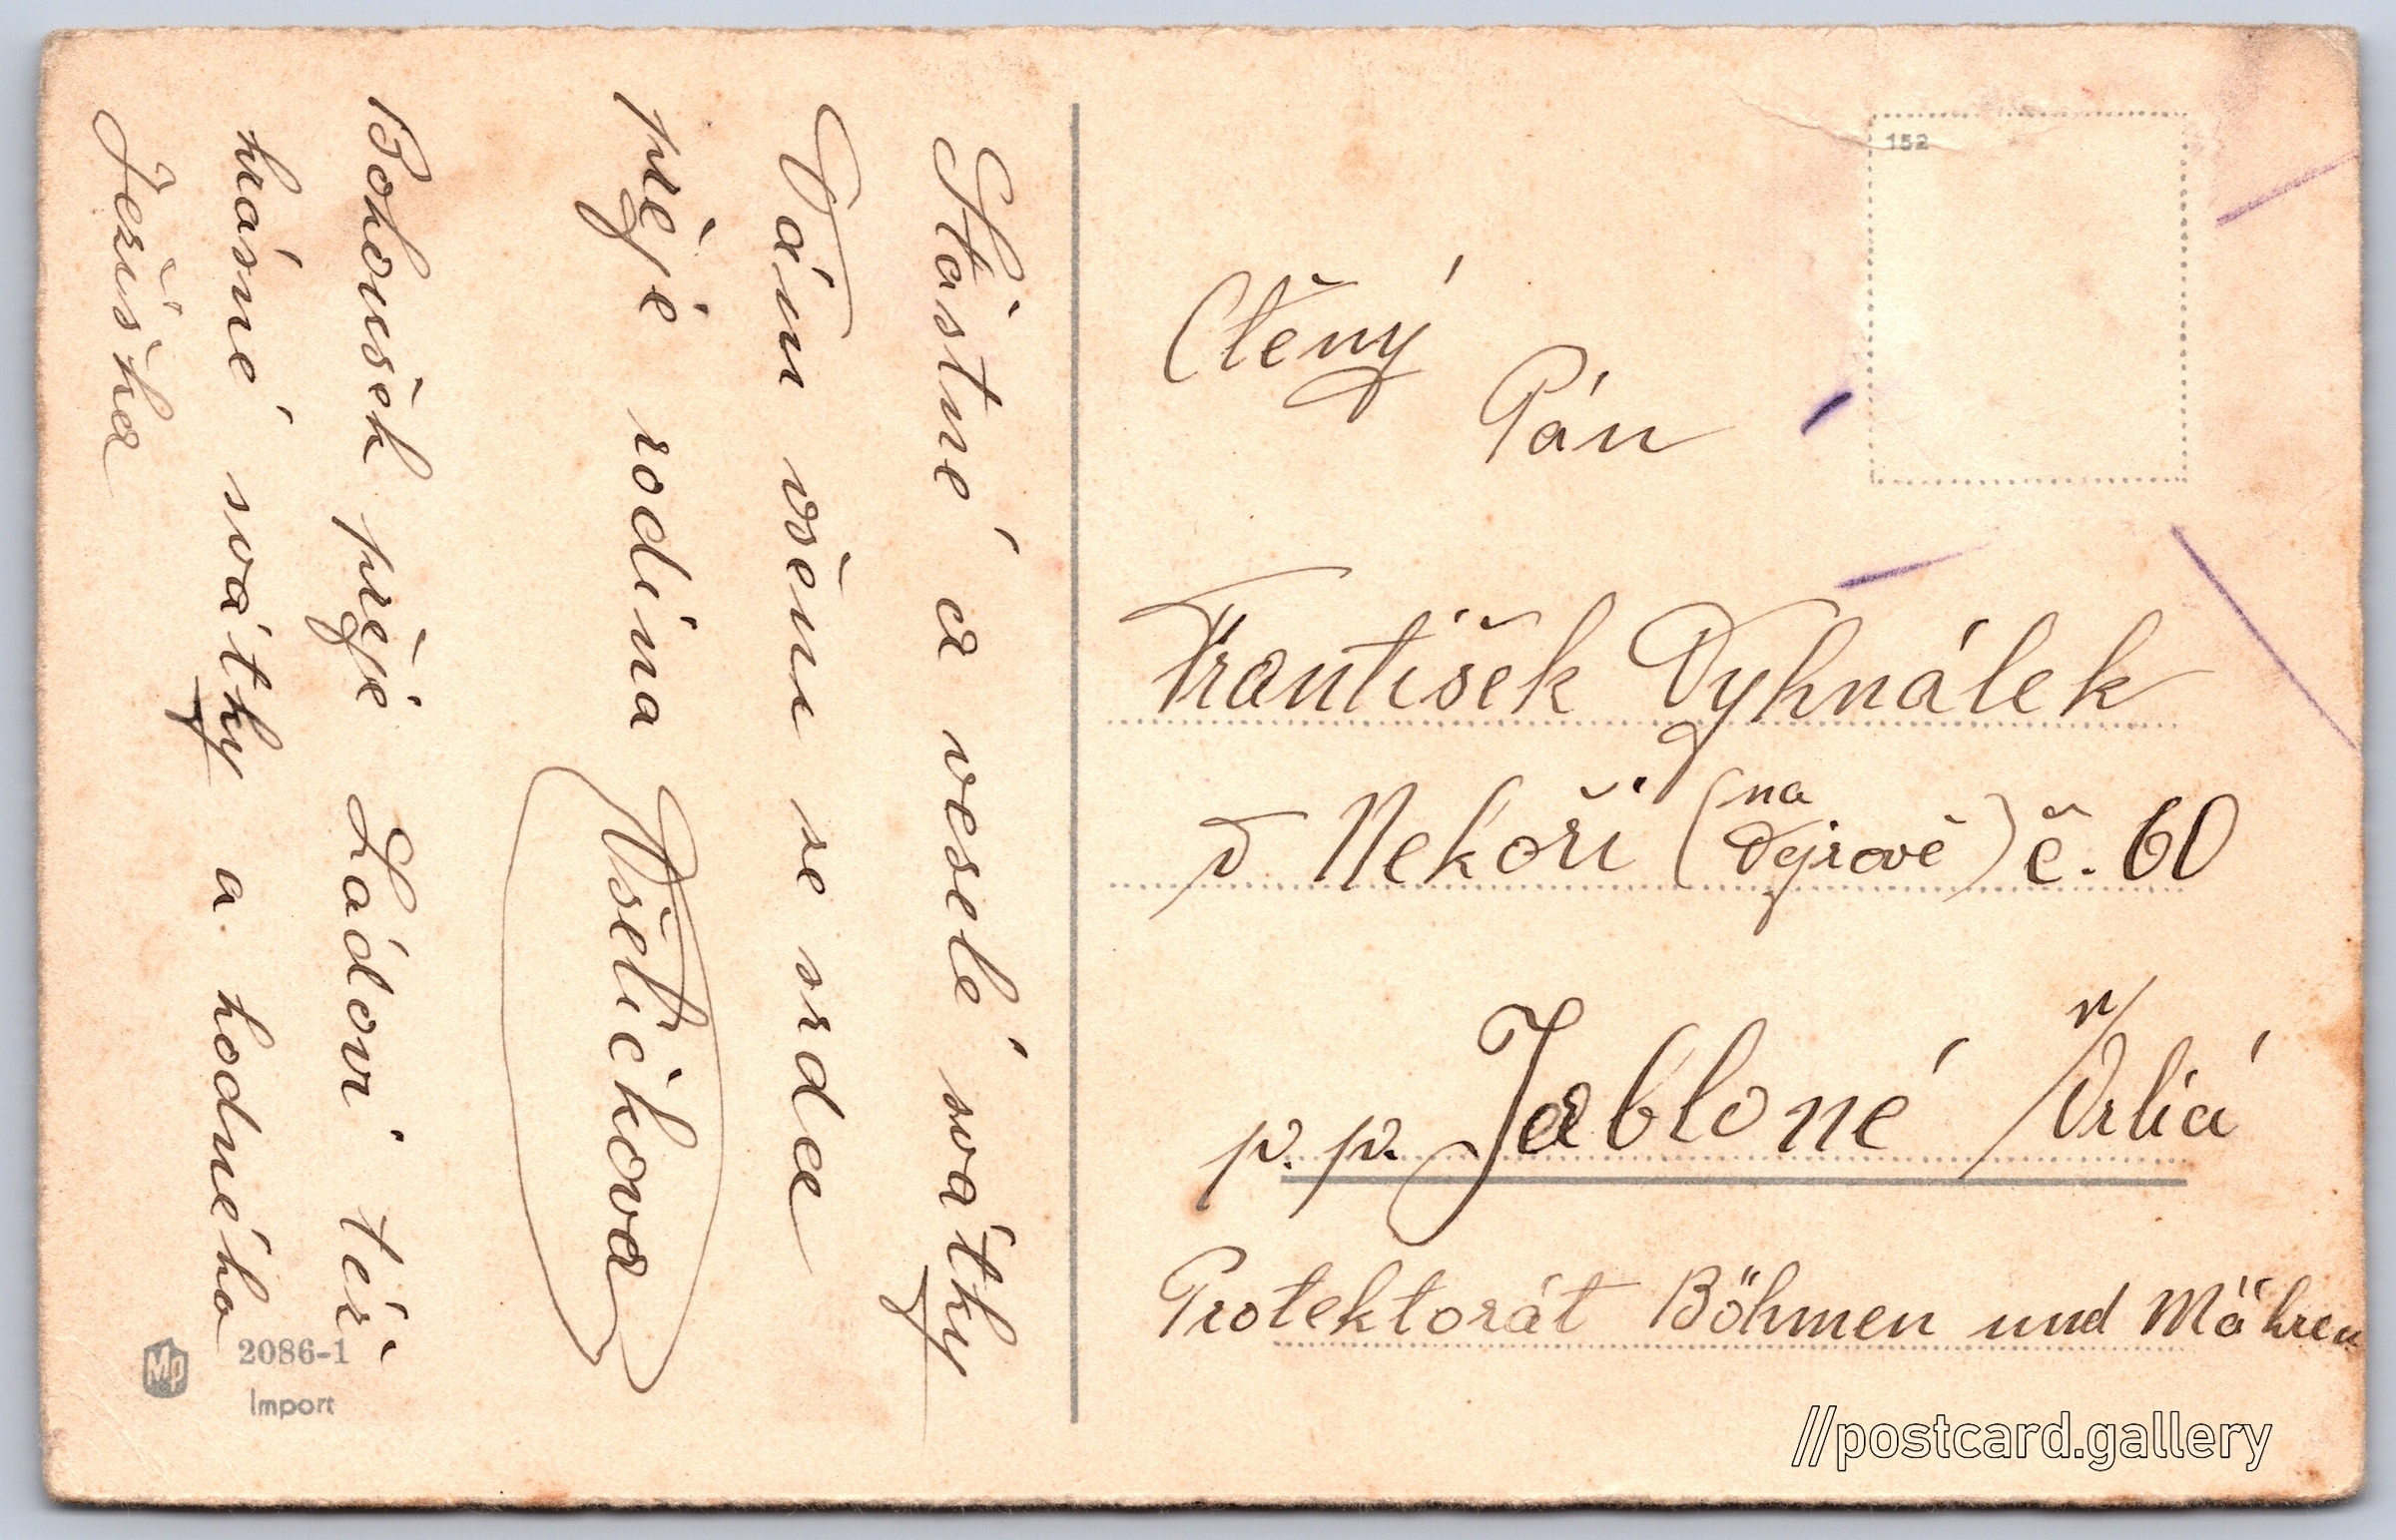 Štastné a veselé svátky
Vám všem ze srdce
přeje rodina Všetičkova
Bohoušek přeje Ládovi též
krásné svátky a hodného
Ježíška
152
Ctěný
Pán
František Vyhnálek
v Nekoři (na Vejrově) č. 60
p. p. Jabloné n/ Orlicí
Protektorát Böhmen und Mähren
Mp
2086-1
Import
//postcard.gallery